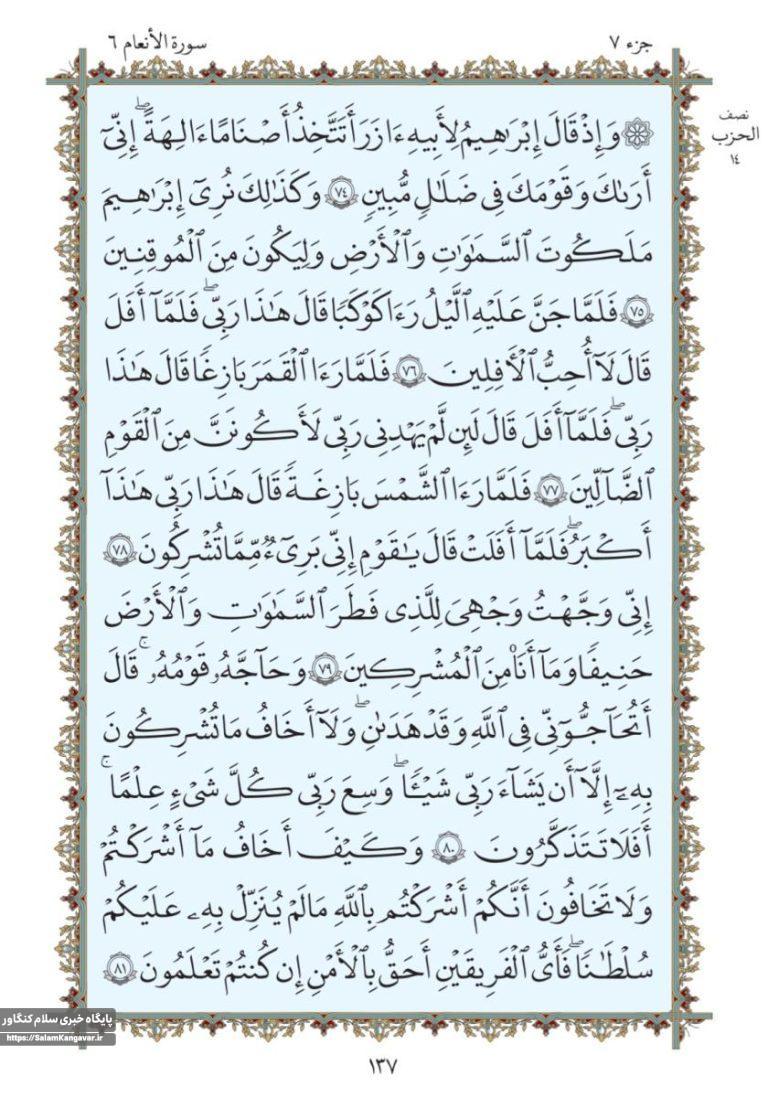 جزء ٧
سورة الأنعام ٦
نصف
الحزب
١٤
۞ وَإِذْ قَالَ إِبْرَٰهِيمُ لِأَبِيهِ ءَازَرَ أَتَتَّخِذُ أَصْنَامًا ءَالِهَةً ۖ إِنِّىٓ
أَرَىٰكَ وَقَوْمَكَ فِى ضَلَٰلٍ مُّبِينٍ ٧٤ وَكَذَٰلِكَ نُرِىٓ إِبْرَٰهِيمَ
مَلَكُوتَ ٱلسَّمَٰوَٰتِ وَٱلْأَرْضِ وَلِيَكُونَ مِنَ ٱلْمُوقِنِينَ
٧٥ فَلَمَّا جَنَّ عَلَيْهِ ٱلَّيْلُ رَءَا كَوْكَبًا قَالَ هَٰذَا رَبِّى ۖ فَلَمَّآ أَفَلَ
قَالَ لَآ أُحِبُّ ٱلْأَفِلِينَ ٧٦ فَلَمَّا رَءَا ٱلْقَمَرَ بَازِغًا قَالَ هَٰذَا
رَبِّى ۖ فَلَمَّآ أَفَلَ قَالَ لَئِن لَّمْ يَهْدِنِى رَبِّى لَأَكُونَنَّ مِنَ ٱلْقَوْمِ
ٱلضَّآلِّينَ ٧٧ فَلَمَّا رَءَا ٱلشَّمْسَ بَازِغَةً قَالَ هَٰذَا رَبِّى هَٰذَآ
أَكْبَرُ ۖ فَلَمَّآ أَفَلَتْ قَالَ يَٰقَوْمِ إِنِّى بَرِىٓءٌ مِّمَّا تُشْرِكُونَ ٧٨
إِنِّى وَجَّهْتُ وَجْهِىَ لِلَّذِى فَطَرَ ٱلسَّمَٰوَٰتِ وَٱلْأَرْضَ
حَنِيفًا وَمَآ أَنَا۠ مِنَ ٱلْمُشْرِكِينَ ٧٩ وَحَآجَّهُۥ قَوْمُهُۥ ۚ قَالَ
أَتُحَٰٓجُّوٓنِّى فِى ٱللَّهِ وَقَدْ هَدَىٰنِ ۖ وَلَآ أَخَافُ مَا تُشْرِكُونَ
بِهِۦٓ إِلَّآ أَن يَشَآءَ رَبِّى شَيْـًٔا ۖ وَسِعَ رَبِّى كُلَّ شَىْءٍ عِلْمًا ۚ
أَفَلَا تَتَذَكَّرُونَ ٨٠ وَكَيْفَ أَخَافُ مَآ أَشْرَكْتُمْ
وَلَا تَخَافُونَ أَنَّكُمْ أَشْرَكْتُم بِٱللَّهِ مَا لَمْ يُنَزِّلْ بِهِۦ عَلَيْكُمْ
سُلْطَٰنًا ۖ فَأَىُّ ٱلْفَرِيقَيْنِ أَحَقُّ بِٱلْأَمْنِ إِن كُنتُمْ تَعْلَمُونَ ٨١
پایگاه خبری سلام کنگاور
https://SalamKangavar.ir
١٣٧